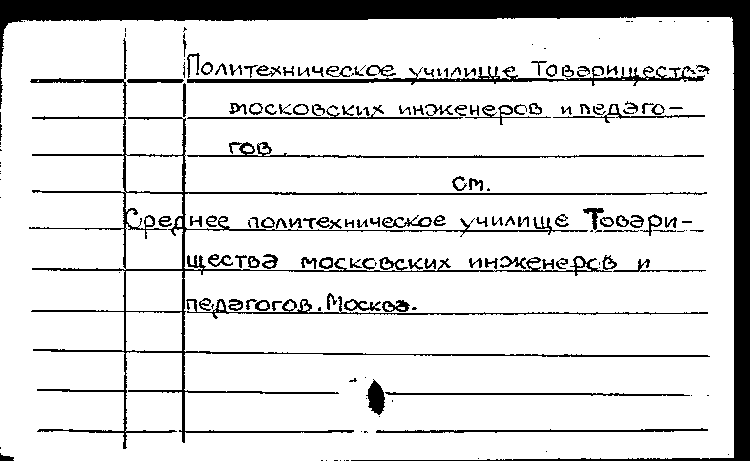 Политехническое училище Товарищества
московских инженеров и педаго-
гов.
см.
Среднее политехническое училище Товари-
щества московских инженеров и
педагогов. Москва.